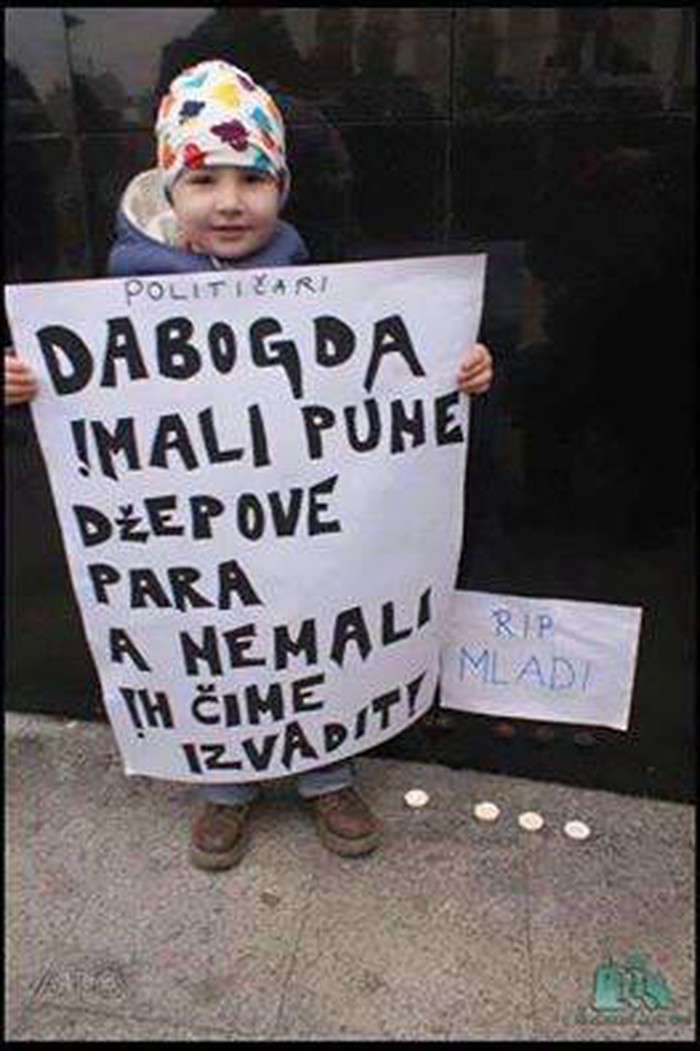 POLITIČARI
DABOGDA
IMALI PUNE
DŽEPOVE
PARA
A NEMALI
IH ČIME
IZVADITI
RIP
MLADI